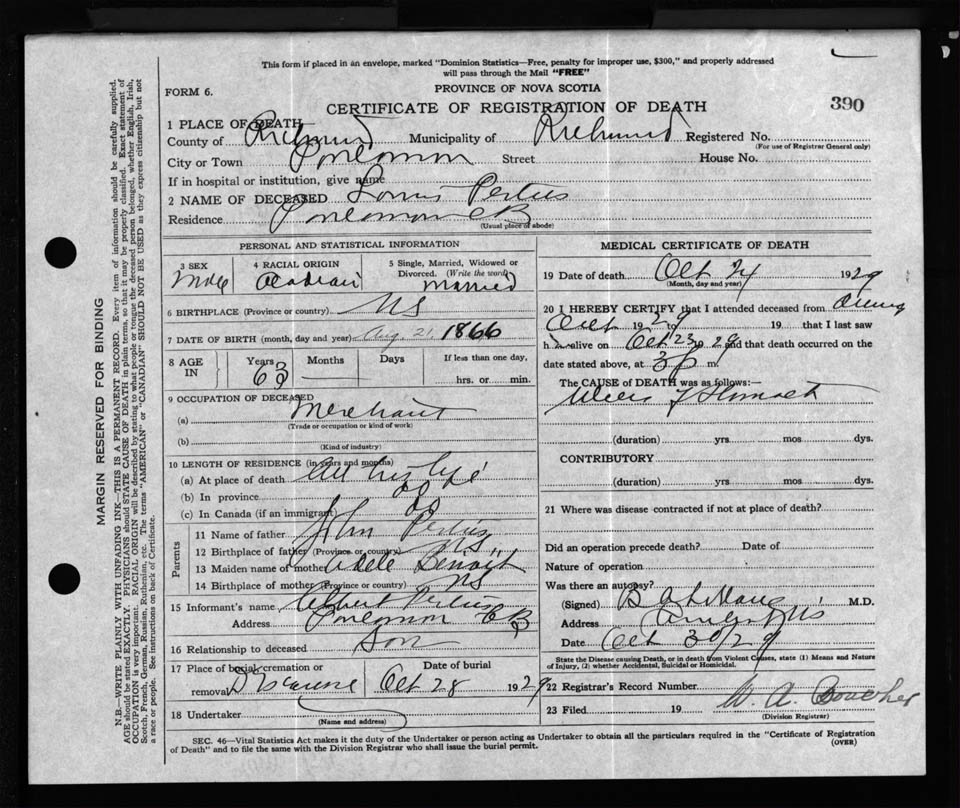 This form if placed in an envelope, marked "Dominion Statistics—Free, penalty for improper use, $300," and properly addressed
will pass through the Mail "FREE"
FORM 6.
PROVINCE OF NOVA SCOTIA
CERTIFICATE OF REGISTRATION OF DEATH
390
1 PLACE OF DEATH
County of Richmond Municipality of Richmond Registered No.
(For use of Registrar General only)
City or Town Street House No.
If in hospital or institution, give name
2 NAME OF DECEASED
Residence C B
(Usual place of abode)
PERSONAL AND STATISTICAL INFORMATION
3 SEX Male
4 RACIAL ORIGIN Acadian
5 Single, Married, Widowed or Divorced. (Write the word) Married
6 BIRTHPLACE (Province or country) NS
7 DATE OF BIRTH (month, day and year) Aug 21, 1866
8 AGE IN Years 63 Months Days If less than one day, hrs. or min.
9 OCCUPATION OF DECEASED
(a) Merchant
(Trade or occupation or kind of work)
(b)
(Kind of industry)
10 LENGTH OF RESIDENCE (in years and months)
(a) At place of death All his life
(b) In province do
(c) In Canada (if an immigrant) do
Parents
11 Name of father John
12 Birthplace of father (Province or country) NS
13 Maiden name of mother Adele Benoit
14 Birthplace of mother (Province or country) NS
15 Informant's name Albert
Address C B
16 Relationship to deceased Son
17 Place of burial, cremation or removal D'Escousse
Date of burial Oct 28 1929
18 Undertaker
(Name and address)
MEDICAL CERTIFICATE OF DEATH
19 Date of death Oct 24 1929
(Month, day and year)
20 I HEREBY CERTIFY that I attended deceased from during
Oct 1929 19 that I last saw
h alive on Oct 23 29 and that death occurred on the
date stated above, at 3 p m.
The CAUSE of DEATH was as follows:—
Ulcer of Stomach
(duration) yrs mos dys.
CONTRIBUTORY
(duration) yrs mos dys.
21 Where was disease contracted if not at place of death?
Did an operation precede death? Date of
Nature of operation
Was there an autopsy?
(Signed) M.D.
Address NS
Date Oct 30/29
State the Disease causing Death, or in death from Violent Causes, state (1) Means and Nature
of Injury, (2) whether Accidental, Suicidal or Homicidal.
22 Registrar's Record Number
23 Filed 19 W. A.
(Division Registrar)
SEC. 46—Vital Statistics Act makes it the duty of the Undertaker or person acting as Undertaker to obtain all the particulars required in the "Certificate of Registration
of Death" and to file the same with the Division Registrar who shall issue the burial permit.
(OVER)
MARGIN RESERVED FOR BINDING
N.B.—WRITE PLAINLY WITH UNFADING INK—THIS IS A PERMANENT RECORD. Every item of information should be carefully supplied.
AGE should be stated EXACTLY. PHYSICIANS should STATE CAUSE OF DEATH in plain terms, so that it may be properly classified. Exact statement of
OCCUPATION is very important. RACIAL ORIGIN will be described by stating to what people or tongue the deceased person belonged, whether English, Irish,
Scotch, French, German, Russian, Ruthenian, etc. The terms "AMERICAN" or "CANADIAN" SHOULD NOT BE USED as they express citizenship but not
a race or people. See instructions on back of Certificate.